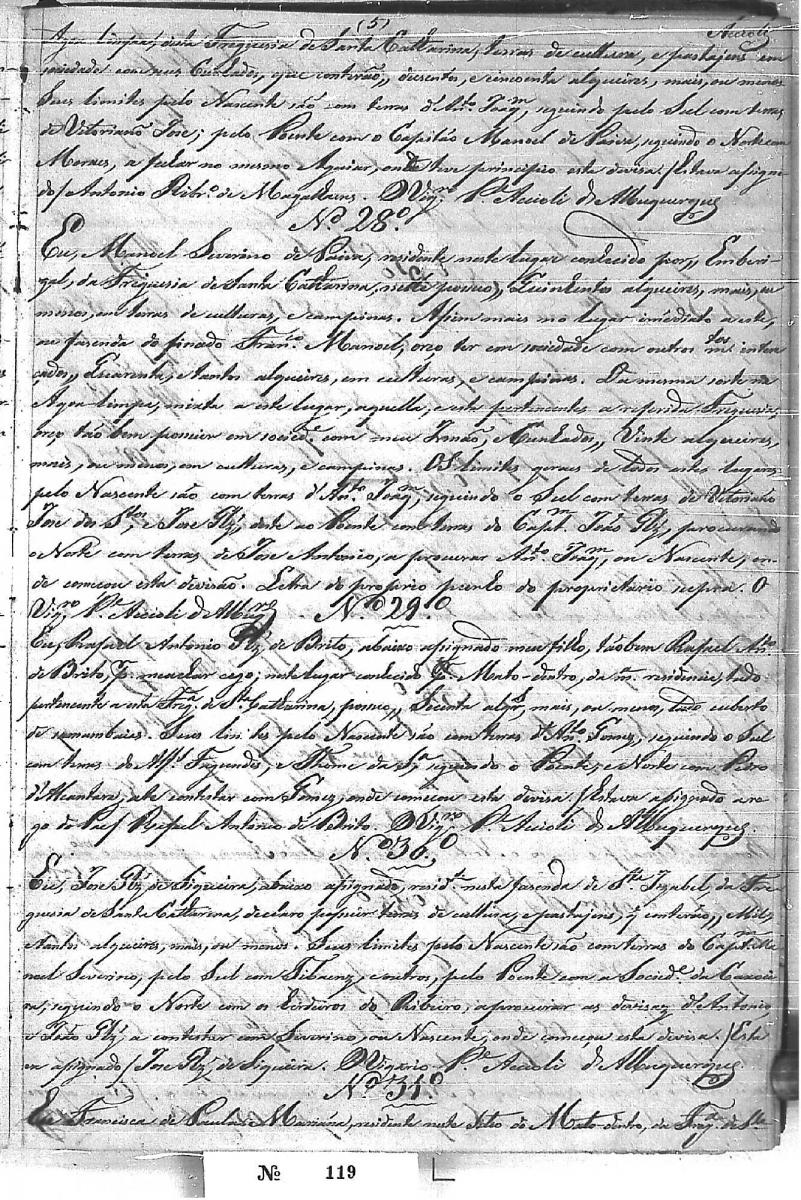 (5) Accioli
Agoa limpa, desta Freguesia de Santa Catharina, terras de cultura, e pastajens em
sociedade com seus Cunhados, que conterão,, duzentos, e cincoenta alqueires, mais, ou menos
Seus limites pelo Nascente são com terras d'Anto. Joaqm., seguindo pelo Sul com terras
de Vitoriano Jose; pelo Poente com o Capitão Manoel de Paiva, seguindo o Norte com
Moraes, a fechar no mesmo Aguiar, onde teve principio esta devisa. / Estava assigna-
do / Antonio Ribro. de Magalhaens. O Vigro. Pe. Accioli d'Albuquerque
No. 28.o
Eu, Manoel Severino de Paiva, residente neste lugar conhecido por,, Emberi-
gal, da Freguesia de Santa Catharina, nelle possuo,, Quinhentos alqueires, mais, ou
menos, em terras de culturas, e campinas. Assim mais no lugar imediato a este,
na fazenda do finado Franco. Manoel, orço ter em sociedade com outros mtos. inteira-
çados,, Quarenta, e tantos alqueires, em culturas, e campinas. Da mesma sorte na
Agoa limpa, mixta a este lugar, aquella, e este pertencentes a referida Freguesia,
orço tão bem possuir em socide. com meu Irmão, e Cunhados,, Vinte alqueires,
mais, ou menos, em culturas, e campinas. Os limites geraes de todos estes lugares
pelo Nascente são com terras d'Anto. Joaqm., seguindo o Sul com terras de Vitoriano
Jose dos Stos., e Jose Glz', deste ao Poente com terras do Capm. João Glz', procurando
o Norte com terras de Jose Antonio, a procurar Anto. Joaqm., ou Nascente, on-
de começou esta divisão. Letra do proprio punho do proprietario supra. O
Vigro. Pe. Accioli d'Albuqe. No. 29.o
Eu, Rafael Antonio Glz' de Brito, abaixo assignado meu filho, tãobem Rafael Anto.
de Brito, P. me achar cego; neste lugar conhecido P. Mato-dentro, da ma. residencia, tudo
pertencente a esta Frega. de Sta. Catharina, possuo,, Secenta alqrs., mais, ou menos, tudo cuberto
de samambaias. Seus limites pelo Nascente são com terras d'Anto. Gomes, seguindo o Sul
com terras do Alfs. Fagundes, e Thome da Sa., seguindo o Poente, e Norte com Pedro
d'Alcantara, ate contestar com Gomes, onde começou esta devisa. / Estava assignado a ro-
go do Pae / Rafael Antonio de Brito. O Vigro. Pe. Accioli d'Albuquerque.
No. 30.o
Eu, Jose Glz' de Siqueira, abaixo assignado, residte. nesta fazenda de Sta. Izabel, da Fre-
guesia de Santa Catharina, declaro possuir terras de cultura, e pastajens, q' conterão,, Mil,
e tantos alqueires, mais, ou menos. Seus limites pelo Nascente são com terras do Capm. Ma-
noel Severino, pelo Sul com Tibaens, e outros, pelo Poente com a Sociede. da Caxoei-
ra, seguindo o Norte com os Erdeiros do Ribeiro, a procurar as devisas d'Antonio,
e João Glz', a contestar com Severino, ou Nascente, onde começou esta devisa. / Esta-
va assignado / Jose Glz' de Siqueira. O Vigario Pe. Accioli d'Albuquerque.
No. 31.o
Eu Francisca de Paula e Mariana, residente neste Sitio do Mato-dentro, da Frega. de Sta.
No 119